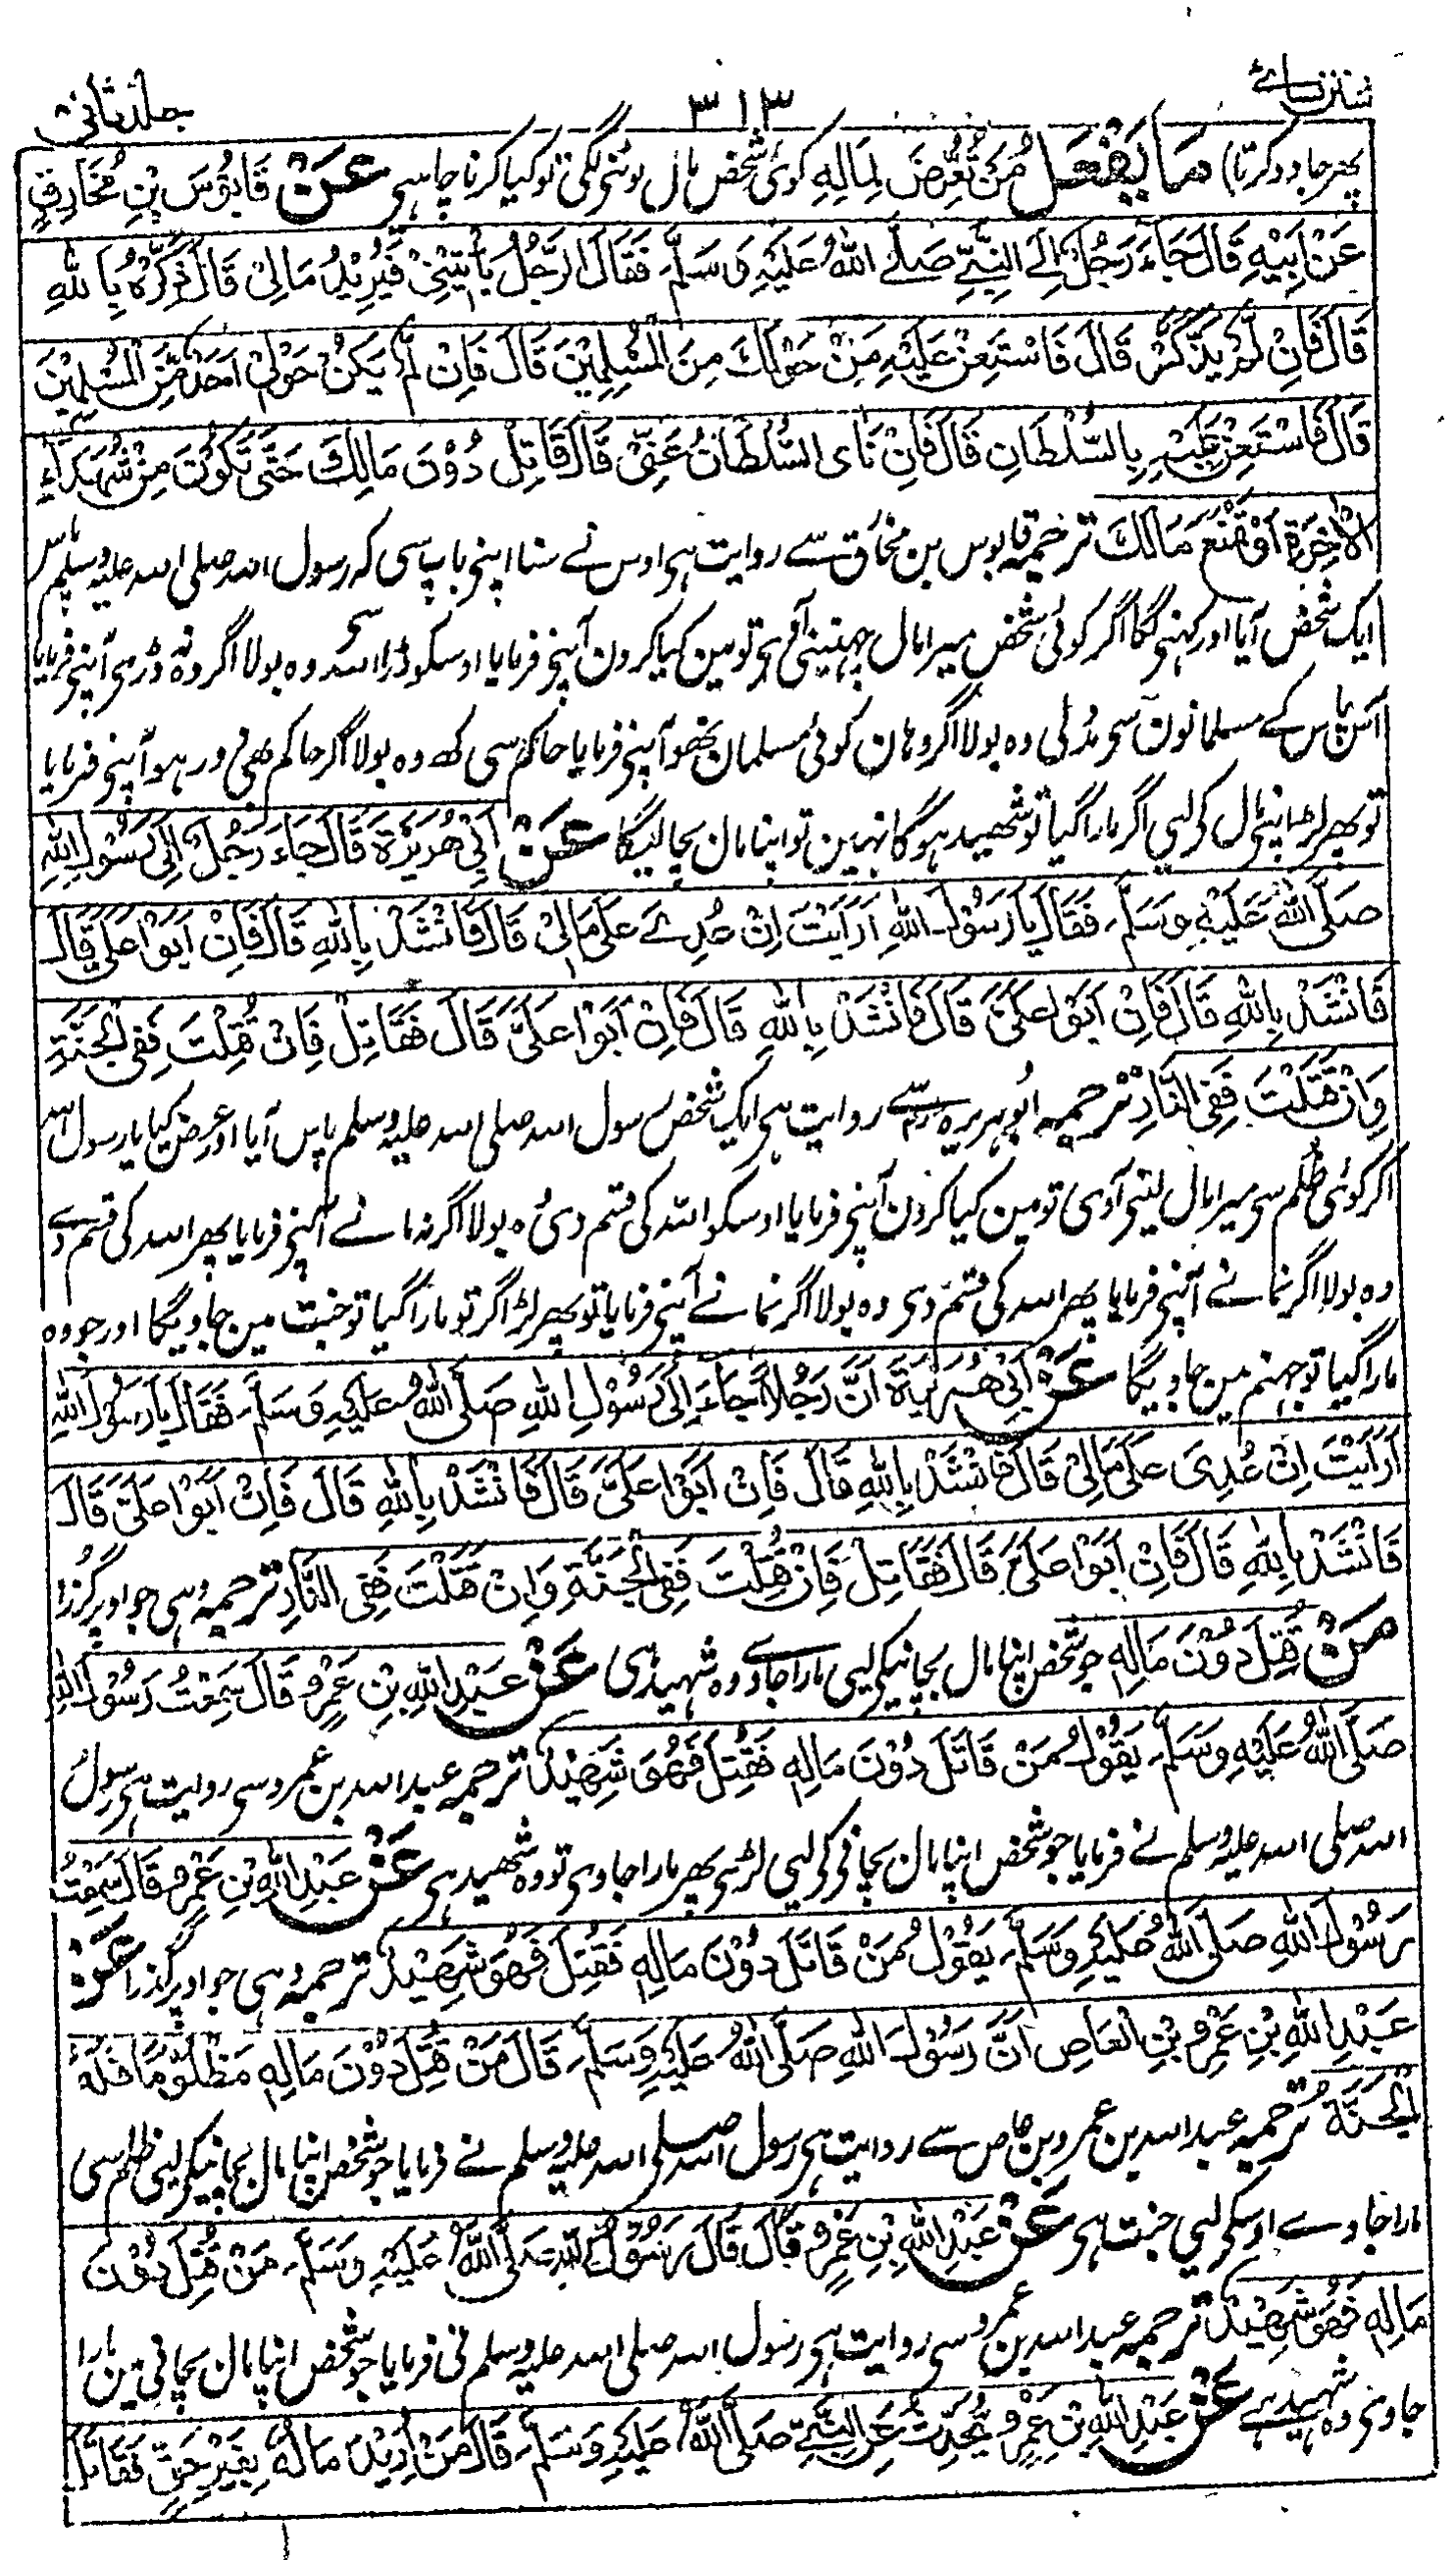 سنن نسائے ۳۱۳ جلد ثانی
پھر جادو کرتا) مَا يَفْعَلُ مَنْ تَعَرَّضَ لِمَالِهِ کوئی شخص مال لوٹنی لگی تو کیا کرنا چاہی عَنْ قَابُوْسَ بْنِ مُخَارِقٍ
عَنْ اَبِيْهِ قَالَ جَاءَ رَجُلٌ اِلَے النَّبِيِّ صَلَّے اللّٰهُ عَلَيْهِ وَسَلَّمَ فَقَالَ الرَّجُلُ يَأْتِيْنِيْ فَيُرِيْدُ مَالِيْ قَالَ ذَكِّرْهُ بِاللّٰهِ
قَالَ فَاِنْ لَّمْ يَذَّكَّرْ قَالَ فَاسْتَعِنْ عَلَيْهِ مَنْ حَوْلَكَ مِنَ الْمُسْلِمِيْنَ قَالَ فَاِنْ لَّمْ يَكُنْ حَوْلِيْ اَحَدٌ مِّنَ الْمُسْلِمِيْنَ
قَالَ فَاسْتَعِنْ عَلَيْهِ بِالسُّلْطَانِ قَالَ فَاِنْ نَاٰى السُّلْطَانُ عَنِّيْ قَالَ قَاتِلْ دُوْنَ مَالِكَ حَتّٰى تَكُوْنَ مِنْ شُهَدَاءِ
الْاٰخِرَةِ اَوْ تَمْنَعَ مَالَكَ ترجمہ قابوس بن مخارق سے روایت ہی اوس نے سنا اپنی باپ سی کہ رسول اللہ صلی اللہ علیہ وسلم پاس
ایک شخص آیا اور کہنی لگا اگر کوئی شخص میرا مال چھیننی آئی تو مین کیا کرون آپنی فرمایا اوسکو ڈرا اللہ سی وہ بولا اگر وہ نہ ڈری آپنی فرمایا
آس پاس کے مسلمانون سی مدد لی وہ بولا اگر وہان کوئی مسلمان نھو آپنی فرمایا حاکم سی کہہ وہ بولا اگر حاکم بھی دور ہو آپنی فرمایا
تو پھر لڑ اپنی مال کی لیی اگر مارا گیا تو شھید ہوگا نہین تو اپنا مال بچا لیگا عَنْ اَبِيْ هُرَيْرَةَ قَالَ جَاءَ رَجُلٌ اِلٰى رَسُوْلِ اللّٰهِ
صَلَّى اللّٰهُ عَلَيْهِ وَسَلَّمَ فَقَالَ يَا رَسُوْلَ اللّٰهِ اَرَاَيْتَ اِنْ عُدِيَ عَلٰى مَالِيْ قَالَ فَانْشُدْ بِاللّٰهِ قَالَ فَاِنْ اَبَوْا عَلَيَّ قَالَ
فَانْشُدْ بِاللّٰهِ قَالَ فَاِنْ اَبَوْا عَلَيَّ قَالَ فَانْشُدْ بِاللّٰهِ قَالَ فَاِنْ اَبَوْا عَلَيَّ قَالَ فَقَاتِلْ فَاِنْ قُتِلْتَ فَفِي الْجَنَّةِ
وَاِنْ قَتَلْتَ فَفِي النَّارِ ترجمہ ابوہریرہ سے روایت ہی ایک شخص رسول اللہ صلی اللہ علیہ وسلم پاس آیا اور عرض کیا یا رسول اللہ
اگر کوئی ظلم سی میرا مال لینی آوی تو مین کیا کرون آپنی فرمایا اوسکو اللہ کی قسم دی وہ بولا اگر نہ مانے آپنی فرمایا پھر اللہ کی قسم دے
وہ بولا اگر نمانے آپنی فرمایا پھر اللہ کی قسم دی وہ بولا اگر نمانے آپنی فرمایا تو پھر لڑ اگر تو مارا گیا تو جنت مین جاویگا اور جو وہ
مارا گیا تو جہنم مین جاویگا عَنْ اَبِيْ هُرَيْرَةَ اَنَّ رَجُلًا جَاءَ اِلٰى رَسُوْلِ اللّٰهِ صَلَّى اللّٰهُ عَلَيْهِ وَسَلَّمَ فَقَالَ يَا رَسُوْلَ اللّٰهِ
اَرَاَيْتَ اِنْ عُدِىَ عَلٰى مَالِيْ قَالَ فَانْشُدْ بِاللّٰهِ قَالَ فَاِنْ اَبَوْا عَلَيَّ قَالَ فَانْشُدْ بِاللّٰهِ قَالَ فَاِنْ اَبَوْا عَلَيَّ قَالَ
فَانْشُدْ بِاللّٰهِ قَالَ فَاِنْ اَبَوْا عَلَيَّ قَالَ فَقَاتِلْ فَاِنْ قُتِلْتَ فَفِي الْجَنَّةِ وَاِنْ قَتَلْتَ فَفِي النَّارِ ترجمہ وہی جو اوپر گزرا
مَنْ قُتِلَ دُوْنَ مَالِهِ جو شخص اپنا مال بچانیکی لیی مارا جاے وہ شہید ہی عَنْ عَبْدِ اللّٰهِ بْنِ عَمْرٍو قَالَ سَمِعْتُ رَسُوْلَ اللّٰهِ
صَلَّى اللّٰهُ عَلَيْهِ وَسَلَّمَ يَقُوْلُ مَنْ قَاتَلَ دُوْنَ مَالِهِ فَقُتِلَ فَهُوَ شَهِيْدٌ ترجمہ عبداللہ بن عمرو سی روایت ہی رسول
اللہ صلی اللہ علیہ وسلم نے فرمایا جو شخص اپنا مال بچانی کی لیی لڑی پھر مارا جاوی تو وہ شھید ہی عَنْ عَبْدِ اللّٰهِ بْنِ عَمْرٍو قَالَ سَمِعْتُ
رَسُوْلَ اللّٰهِ صَلَّى اللّٰهُ عَلَيْهِ وَسَلَّمَ يَقُوْلُ مَنْ قَاتَلَ دُوْنَ مَالِهِ فَقُتِلَ فَهُوَ شَهِيْدٌ ترجمہ وہی جو اوپر گذرا عَنْ
عَبْدِ اللّٰهِ بْنِ عَمْرِو بْنِ الْعَاصِ اَنَّ رَسُوْلَ اللّٰهِ صَلَّى اللّٰهُ عَلَيْهِ وَسَلَّمَ قَالَ مَنْ قُتِلَ دُوْنَ مَالِهِ مَظْلُوْمًا فَلَهُ
الْجَنَّةُ ترجمہ عبداللہ بن عمرو بن عاص سے روایت ہی رسول اللہ صلی اللہ علیہ وسلم نے فرمایا جو شخص اپنا مال بچانیکی لیی ظلم سی
مارا جاوے اوسکی لیی جنت ہی عَنْ عَبْدِ اللّٰهِ بْنِ عَمْرٍو قَالَ قَالَ رَسُوْلُ اللّٰهِ صَلَّى اللّٰهُ عَلَيْهِ وَسَلَّمَ مَنْ قُتِلَ دُوْنَ
مَالِهِ فَهُوَ شَهِيْدٌ ترجمہ عبداللہ بن عمرو سی روایت ہی رسول اللہ صلی اللہ علیہ وسلم نی فرمایا جو شخص اپنا مال بچانی مین مارا
جاوی وہ شہید ہے عَنْ عَبْدِ اللّٰهِ بْنِ عَمْرٍو يُحَدِّثُ عَنِ النَّبِيِّ صَلَّى اللّٰهُ عَلَيْهِ وَسَلَّمَ قَالَ مَنْ اُرِيْدَ مَالُهُ بِغَيْرِ حَقٍّ فَقَاتَلَ